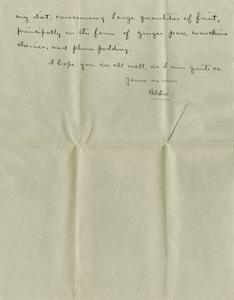 my diet, consuming large quantities of fruit,
principally in the form of ginger pears, maraschino
cherries, and plum pudding.
I hope you are all well, as I am quite so.
Yours as ever